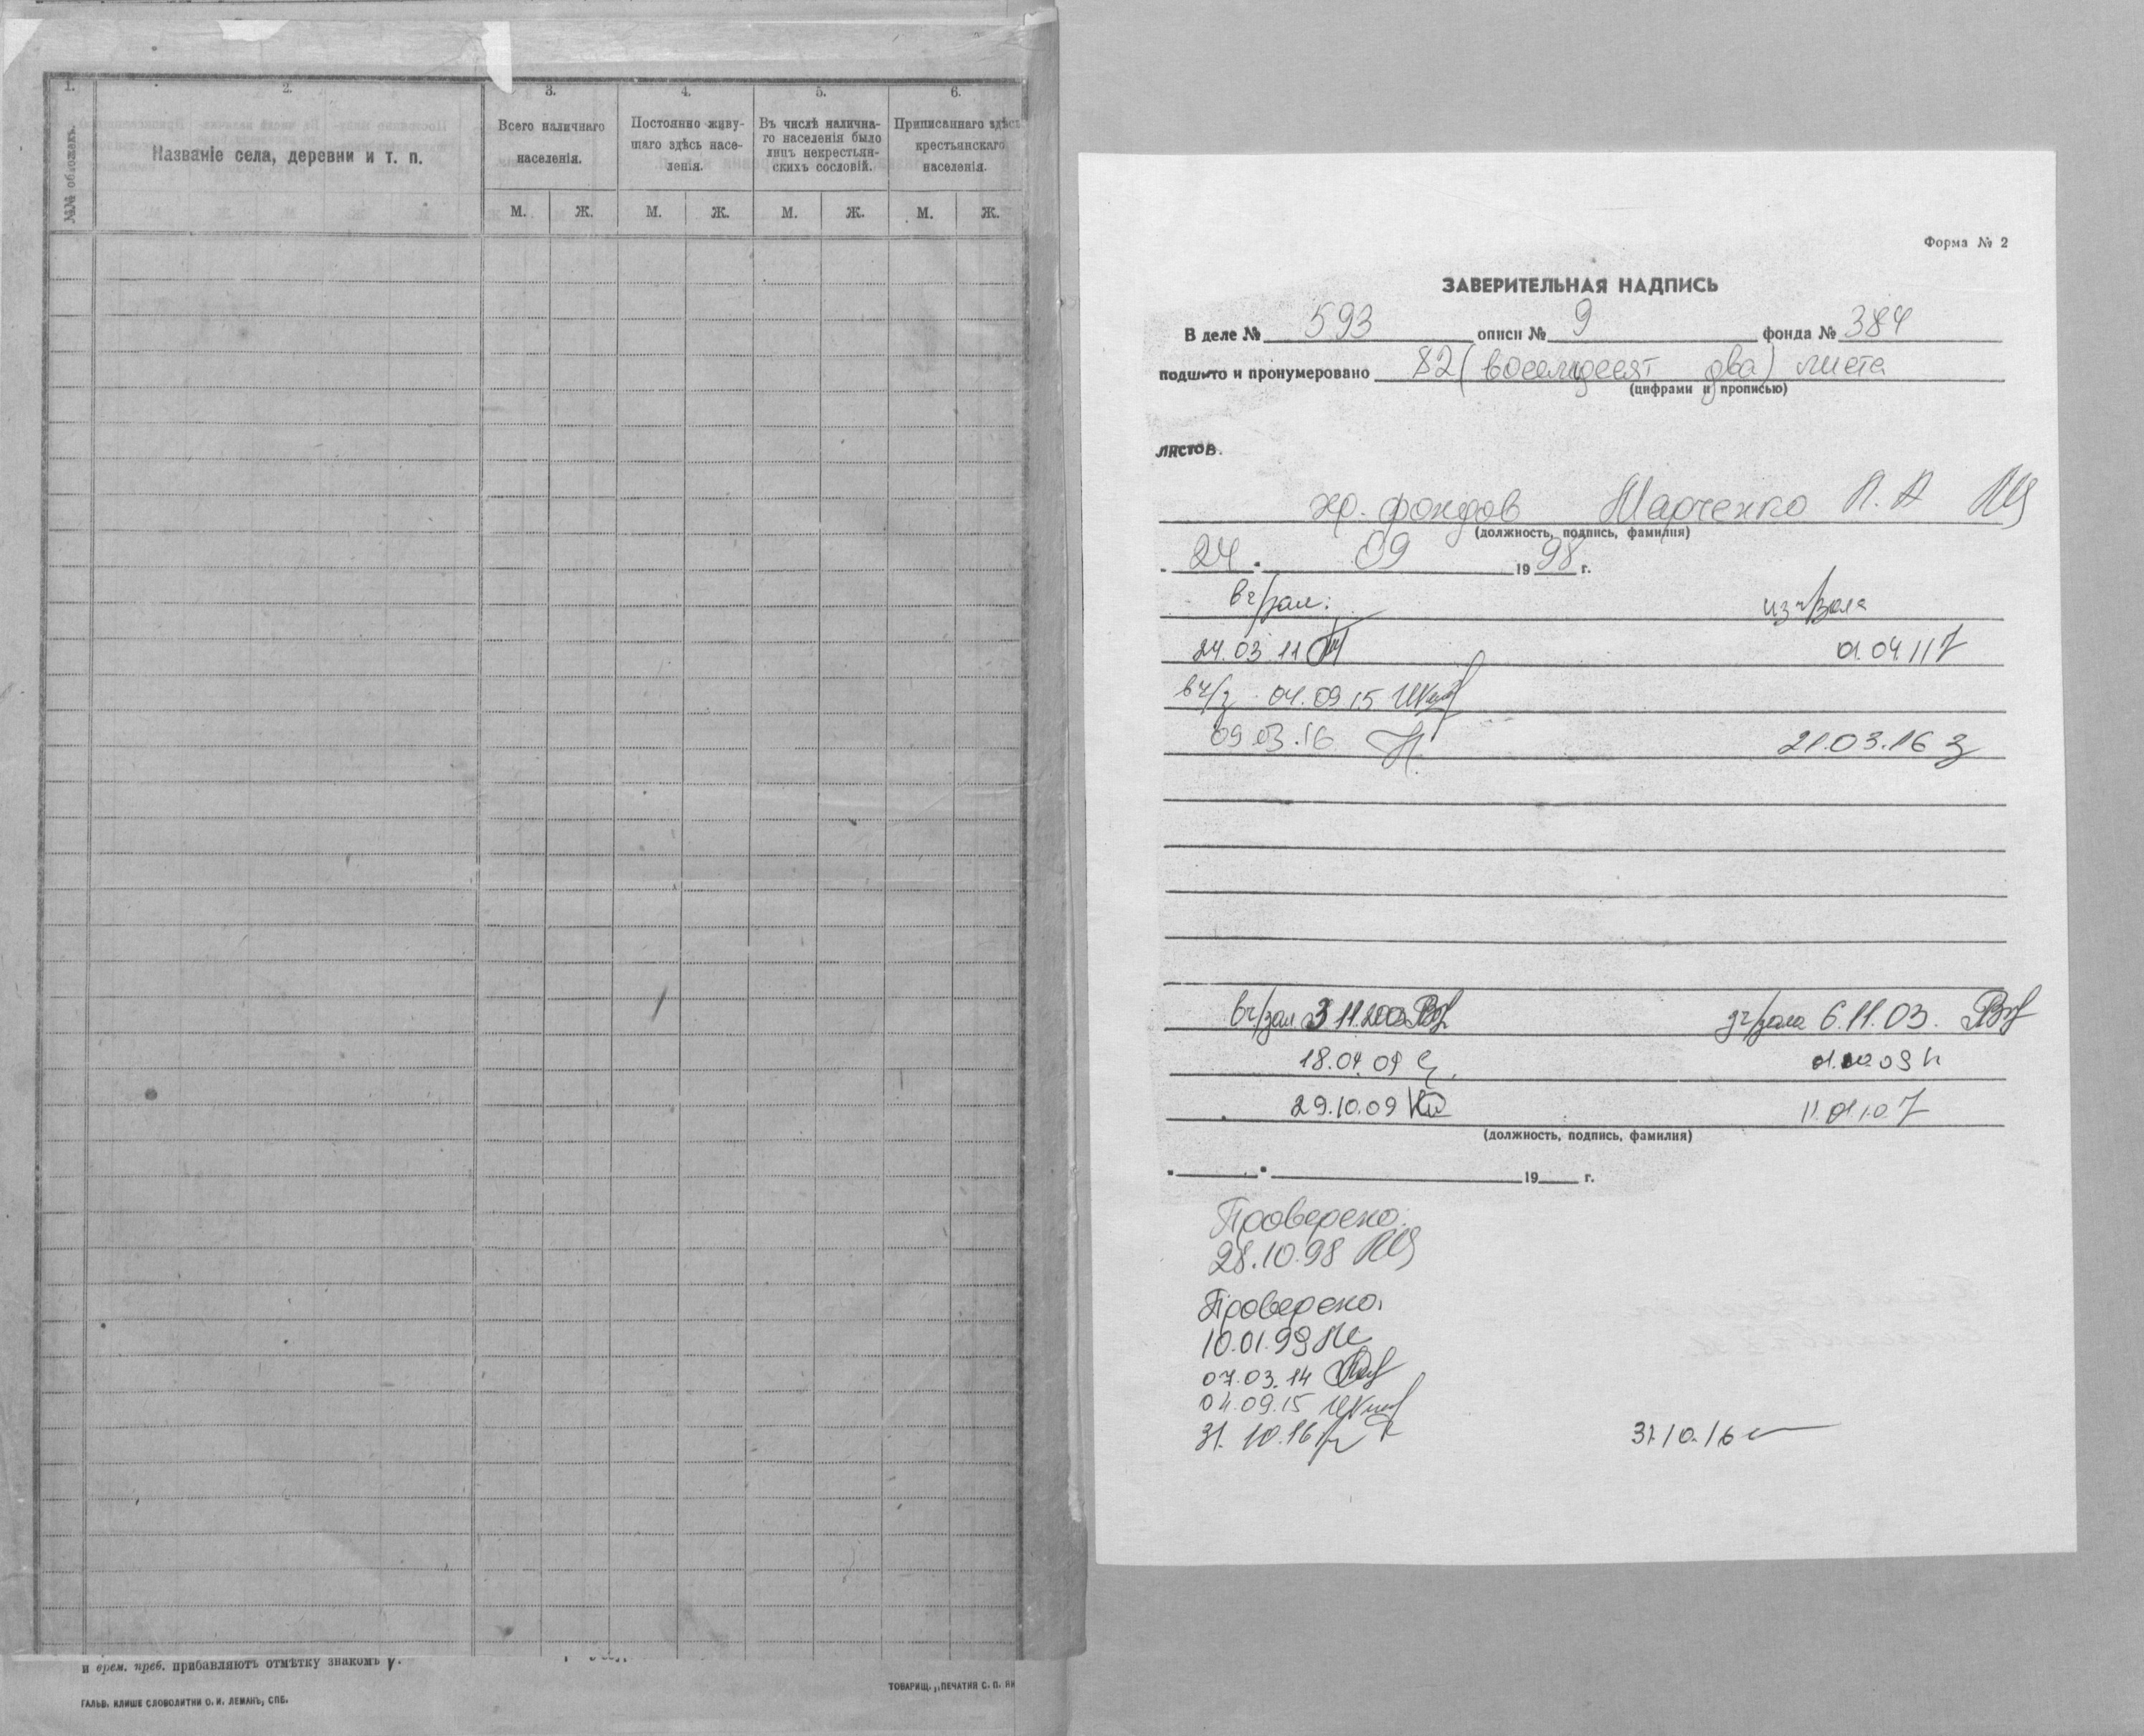 1.
2.
3.
4.
5.
6.
№№ обложекъ.
Названіе села, деревни и т. п.
Всего наличнаго
населенія.
Постоянно живу-
щаго здѣсь насе-
ленія.
Въ числѣ налична-
го населенія было
лицъ некрестьян-
скихъ сословій.
Приписаннаго здѣсь
крестьянскаго
населенія.
М. Ж. М. Ж. М. Ж. М. Ж.
и врем. преб. прибавляютъ отмѣтку знакомъ
ГАЛЬВ. КЛИШЕ СЛОВОЛИТНИ О. И. ЛЕМАНЪ, СПБ.
ТОВАРИЩ. „ПЕЧАТНЯ С. П.
Форма № 2
ЗАВЕРИТЕЛЬНАЯ НАДПИСЬ
В деле № 593 описи № 9 фонда № 384
подшито и пронумеровано 82 (восемдесят два) листа
(цифрами и прописью)
листов.
хр. фондов Марченко Л. А
(должность, подпись, фамилия)
24 09 1998 г.
вч/зал: из ч/зала
24.03.11 01.04.11
вч/з 04.09.15
09.03.16 21.03.16
вч/зал 3 11 200 ч/зала 6.11.03.
18.09.09 09
29.10.09 11.01.10
(должность, подпись, фамилия)
19 г.
Проверено.
28.10.98
Проверено.
10.01.99
07.03.14
04.09.15
31.10.16 31.10.16